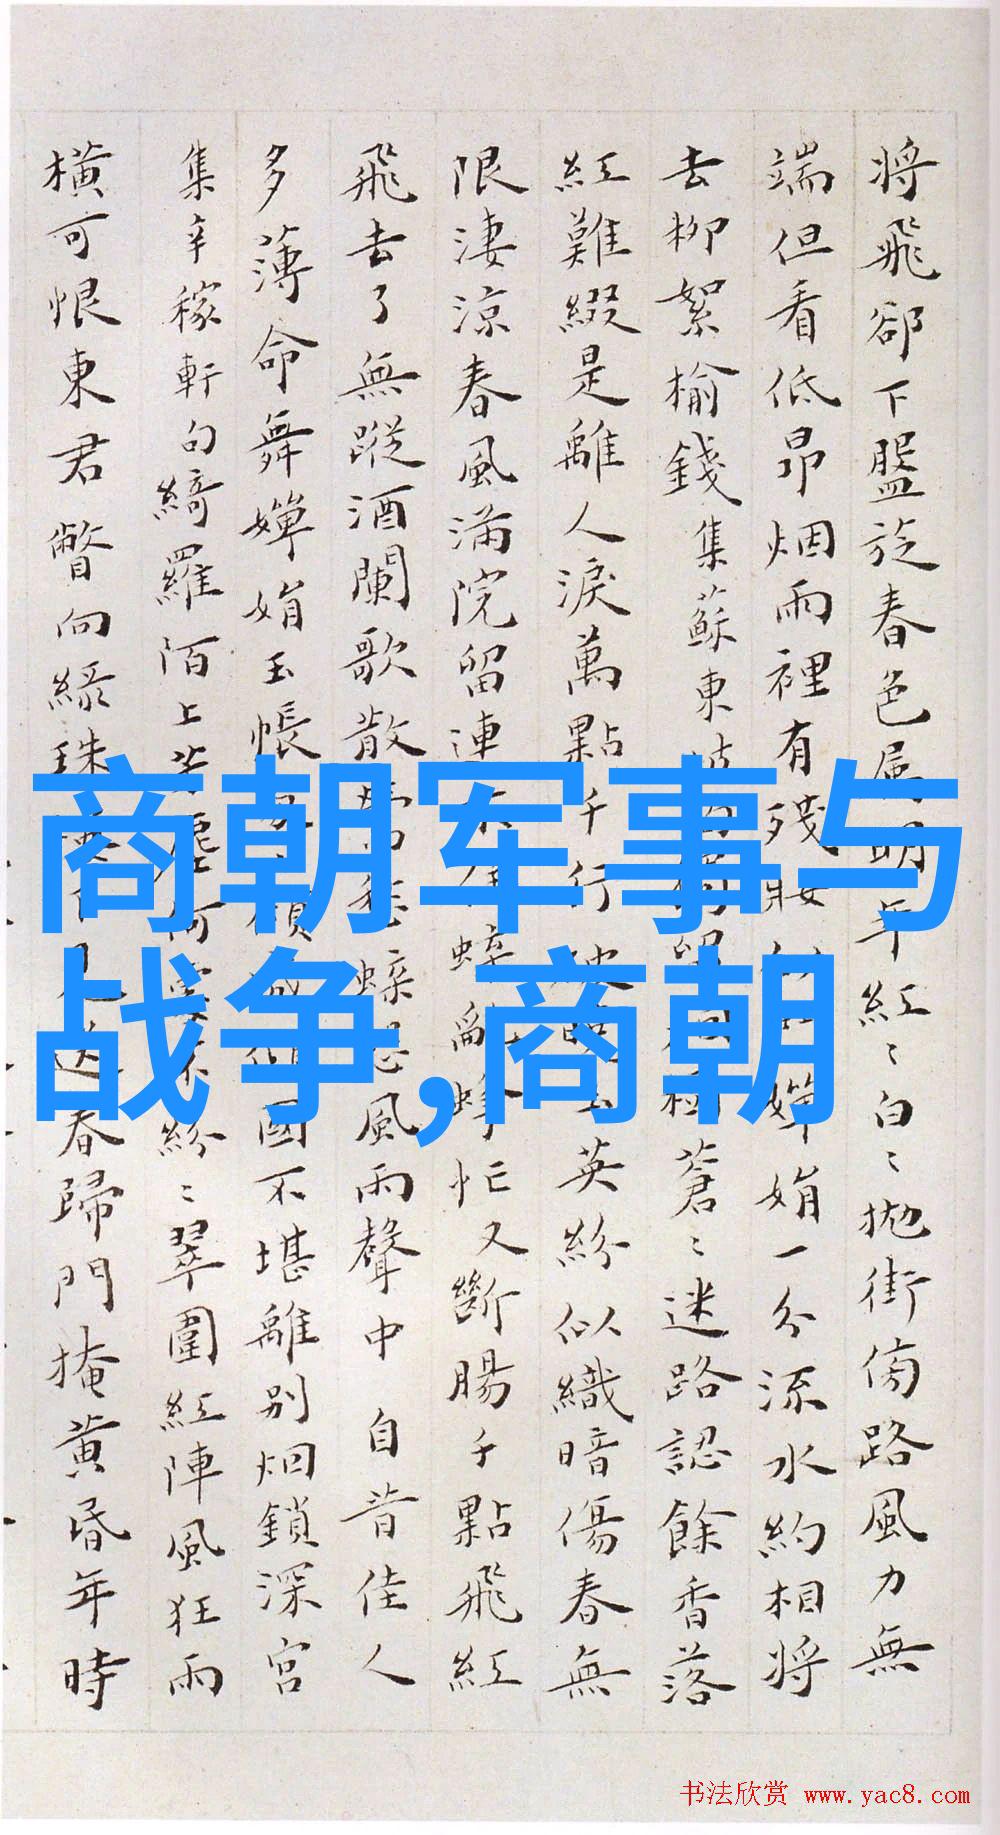 将飛卻下盤旋春色属明年紅〻白〻拋街傍路風力無
端但看低昂烟雨裡有殘妝 嬋娟一分流水約相將
去柳絮榆錢集蘇東坡 蒼〻迷路認餘香落
紅難綴是離人淚萬點千行 英紛似織暗傷春無
限淒涼春風滿院留連 蜂忙又斷腸千點飛紅
飛去了無蹤酒闌歌散 風雨聲中自昔佳人
多薄命舞嬋娟玉帳 國不堪離別烟鎖深宮
集辛稼軒句綺羅陌上芳塵 紛〻翠圍紅陣風狂雨
橫可恨東君瞥向綠珠 春歸門掩黃昏年時
商朝军事与
战争,商朝
书法欣赏 www.yac8.com